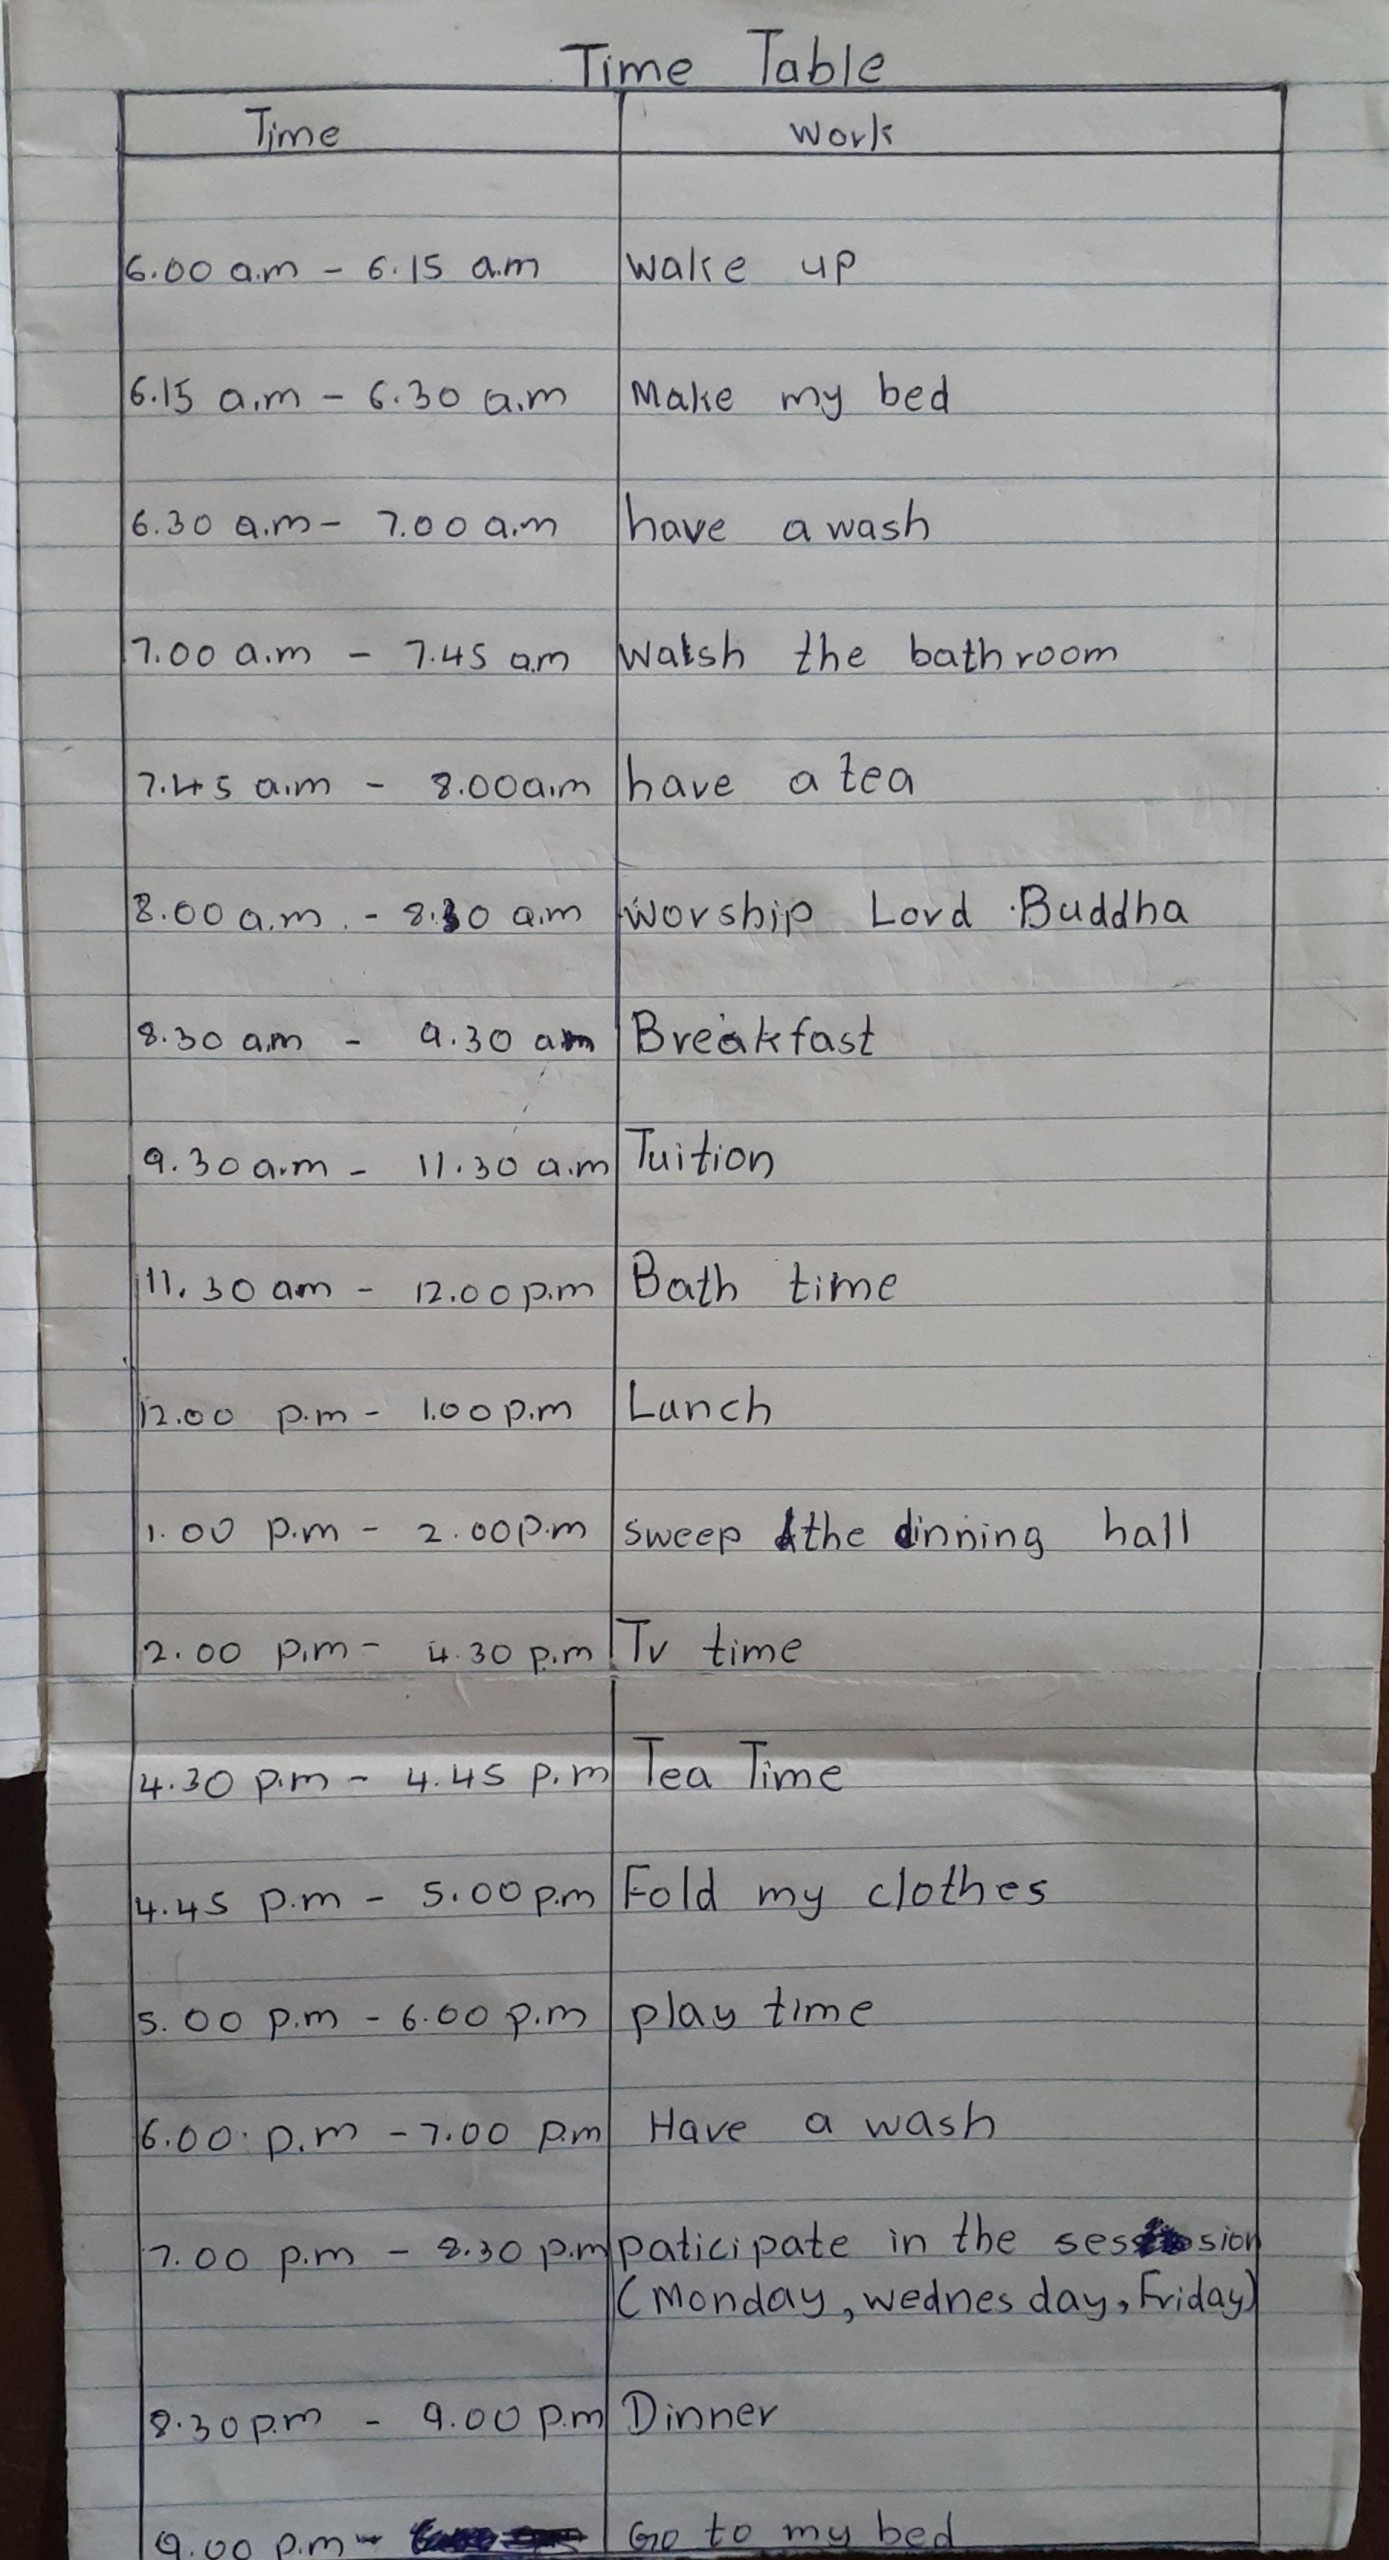 Time Table
Time Work
6.00 a.m - 6.15 a.m Wake up
6.15 a.m - 6.30 a.m Make my bed
6.30 a.m - 7.00 a.m have a wash
7.00 a.m - 7.45 a.m Walsh the bathroom
7.45 a.m - 8.00a.m have a tea
8.00 a.m. - 8.30 a.m Worship Lord Buddha
8.30 a.m - 9.30 am Breakfast
9.30 a.m - 11.30 a.m Tuition
11.30 am - 12.00 p.m Bath time
12.00 p.m - 1.00 p.m Lunch
1.00 p.m - 2.00 p.m sweep the dinning hall
2.00 p.m - 4.30 p.m Tv time
4.30 p.m - 4.45 p.m Tea Time
4.45 p.m - 5.00 p.m Fold my clothes
5.00 p.m - 6.00 p.m play time
6.00 p.m - 7.00 p.m Have a wash
7.00 p.m - 8.30 p.m paticipate in the session
(Monday, wednesday, Friday)
8.30 p.m - 9.00 p.m Dinner
9.00 p.m - Go to my bed